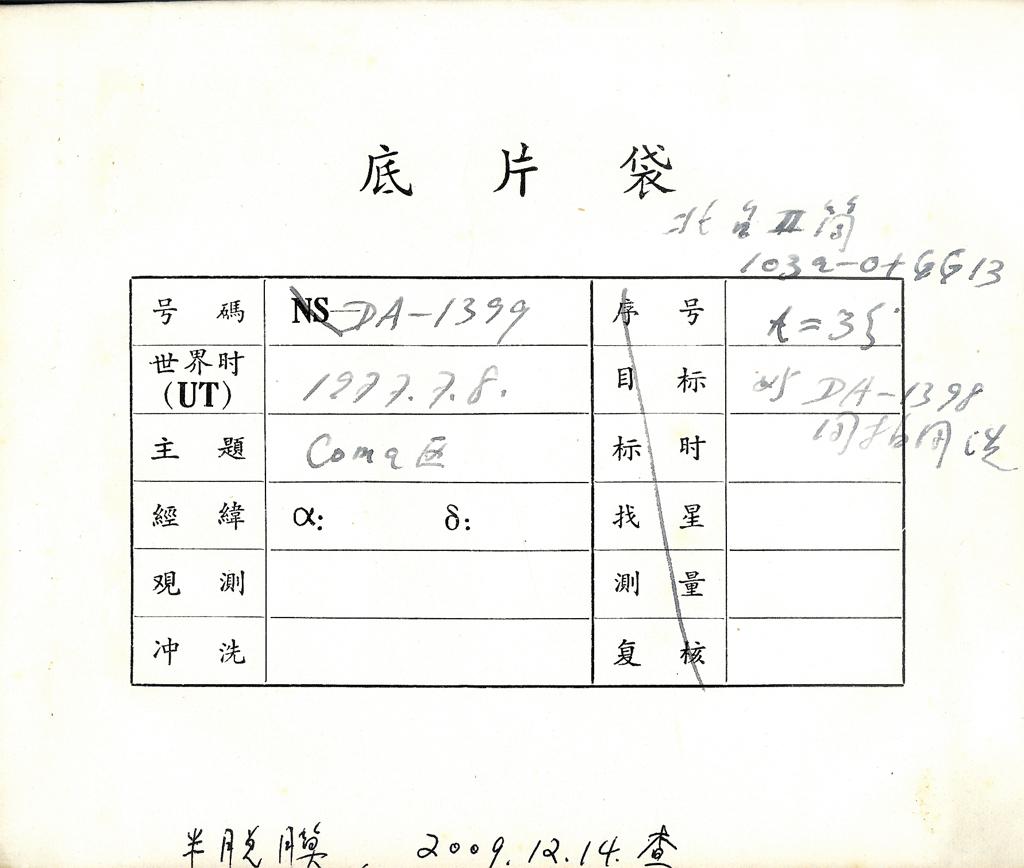 底片袋
北台Ⅲ筒
103a-0+GG13
号碼 NS DA-1399 序号 t=3
世界时(UT) 1977.7.8. 目标 与DA-1398
同拍同洗
主題 Coma区 标时
經緯 α: δ: 找星
观測 測量
冲洗 复核
半脱膜. 2009.12.14.查